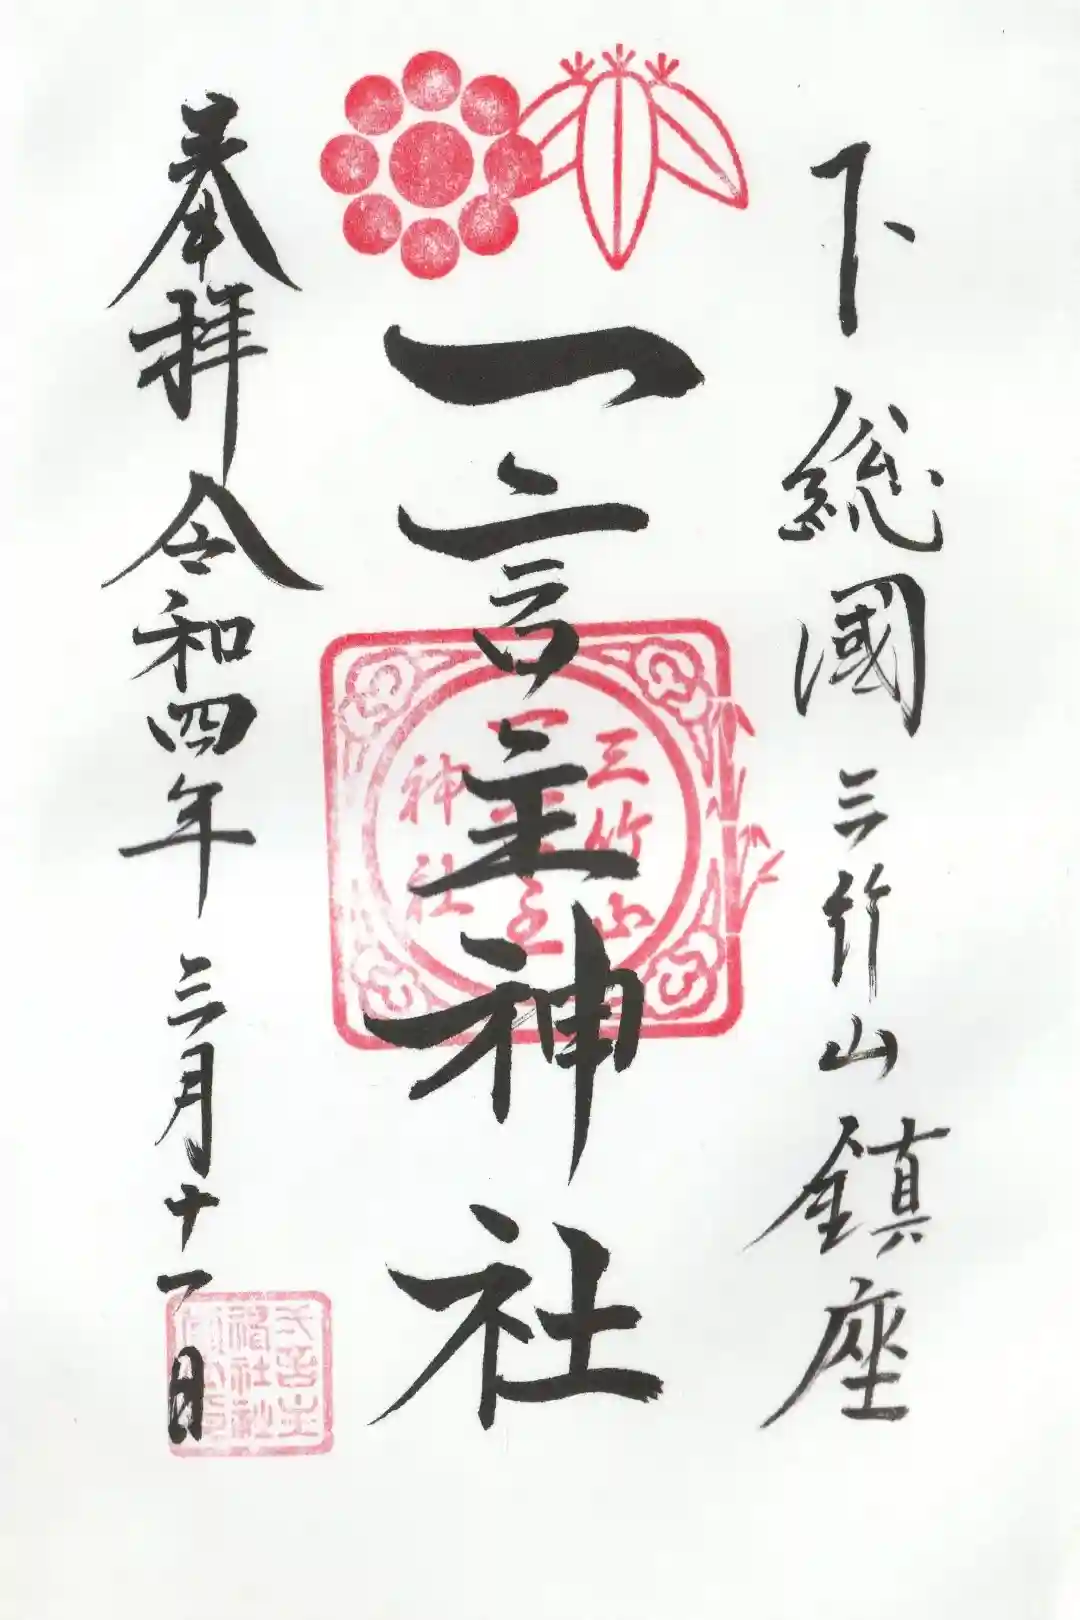 下総國三竹山鎮座
一言主神社
三竹山
一言主
神社
奉拝令和四年三月十一日